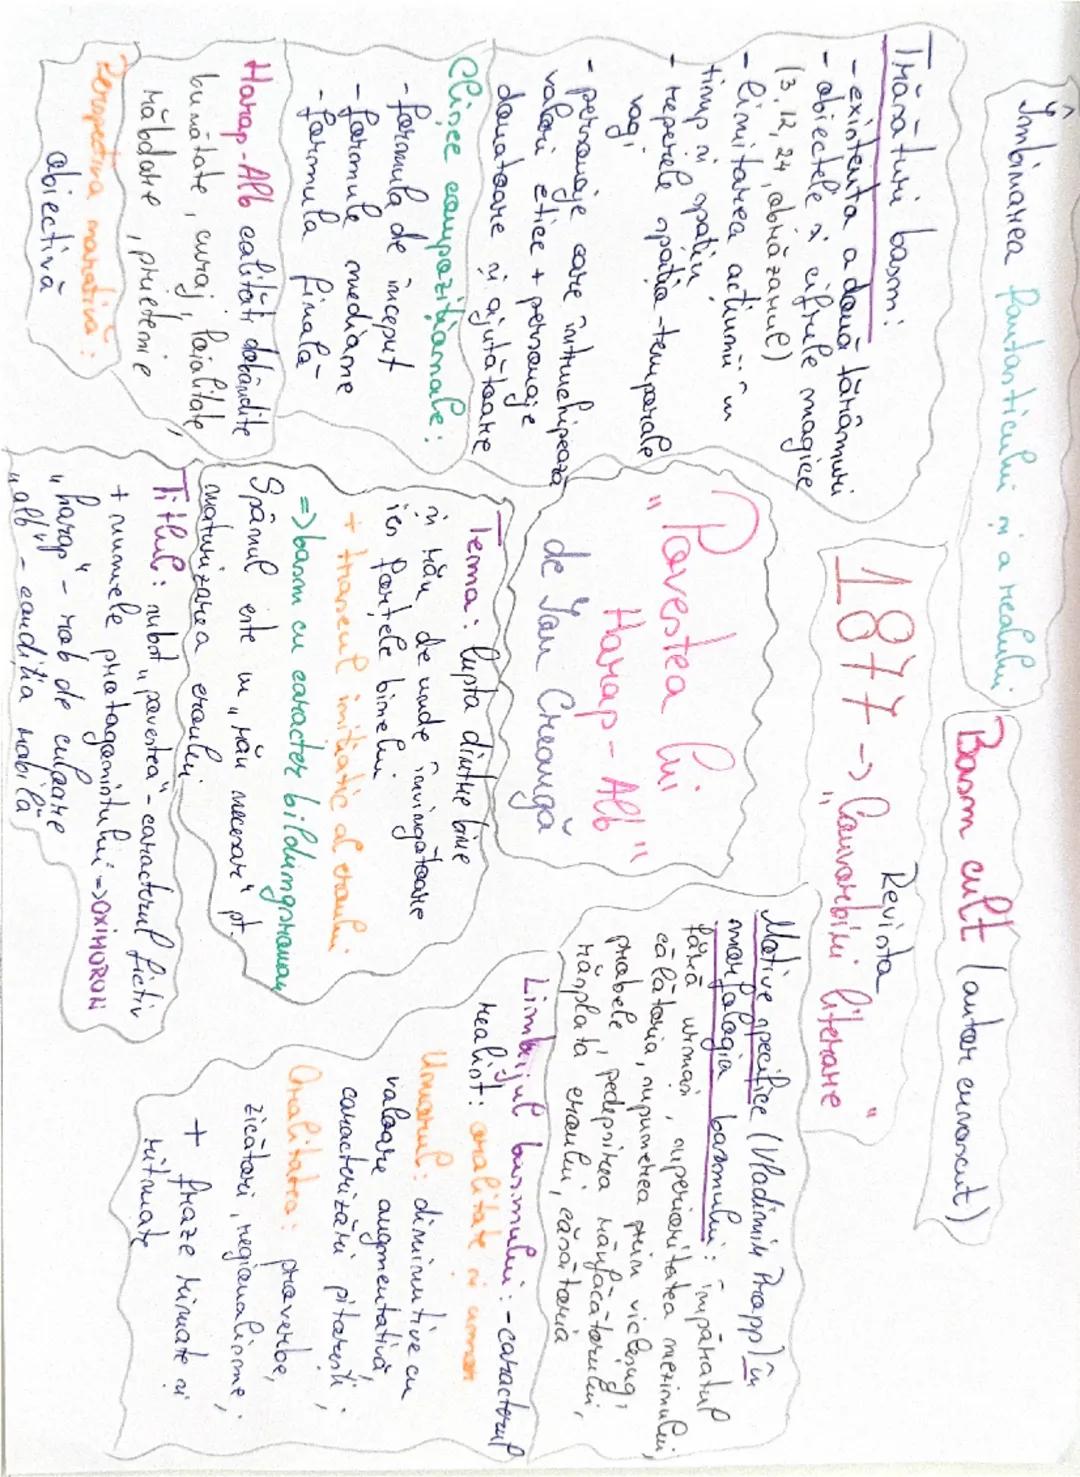 Îmbinarea fantasticului și a realului
Basm cult (autor cunoscut)
Trăsături basm:
- existența a două tărâmuri
- obiectele și cifrele magice
(3, 12, 24, obrăzarul)
- limitarea acțiunii în
timp și spațiu
- reperele spațio-temporale
vagi
- personaje care întruchipează
valori etice + personaje
donatoare și ajutătoare
Clișee compoziționale:
- formula de început
- formule mediane
- formula finală
Harap-Alb calități dobândite
bunătate, curaj, loialitate,
răbdare, prietenie
Perspectiva narativă:
obiectivă
1877 -> Revista
"Convorbiri literare"
"Povestea lui
Harap-Alb"
de Ion Creangă
Tema: lupta dintre bine
și rău de unde învingătoare
ies forțele binelui
+ traseul inițiatic al eroului
=> basm cu caracter bildungsroman
Spânul este un "rău necesar" pt.
maturizarea eroului
Titlul: subst "povestea" - caracterul fictiv
+ numele protagonistului => OXIMORON
"harap" - rob de culoare
"alb" - condiția nobilă
Motive specifice (Vladimir Propp) în
morfologia basmului: împăratul
fără urmași, superioritatea mezinului,
călătoria, supunerea prin vicleșug,
probele, pedepsirea răufăcătorului,
răsplata eroului, căsătoria
Limbajul basmului: - caracterul
realist: oralitate și umor
Umorul: diminutive cu
valoare augmentativă,
caracterizări pitorești;
Oralitatea: proverbe,
zicători, regionalisme,
+ fraze rimate și
ritmate